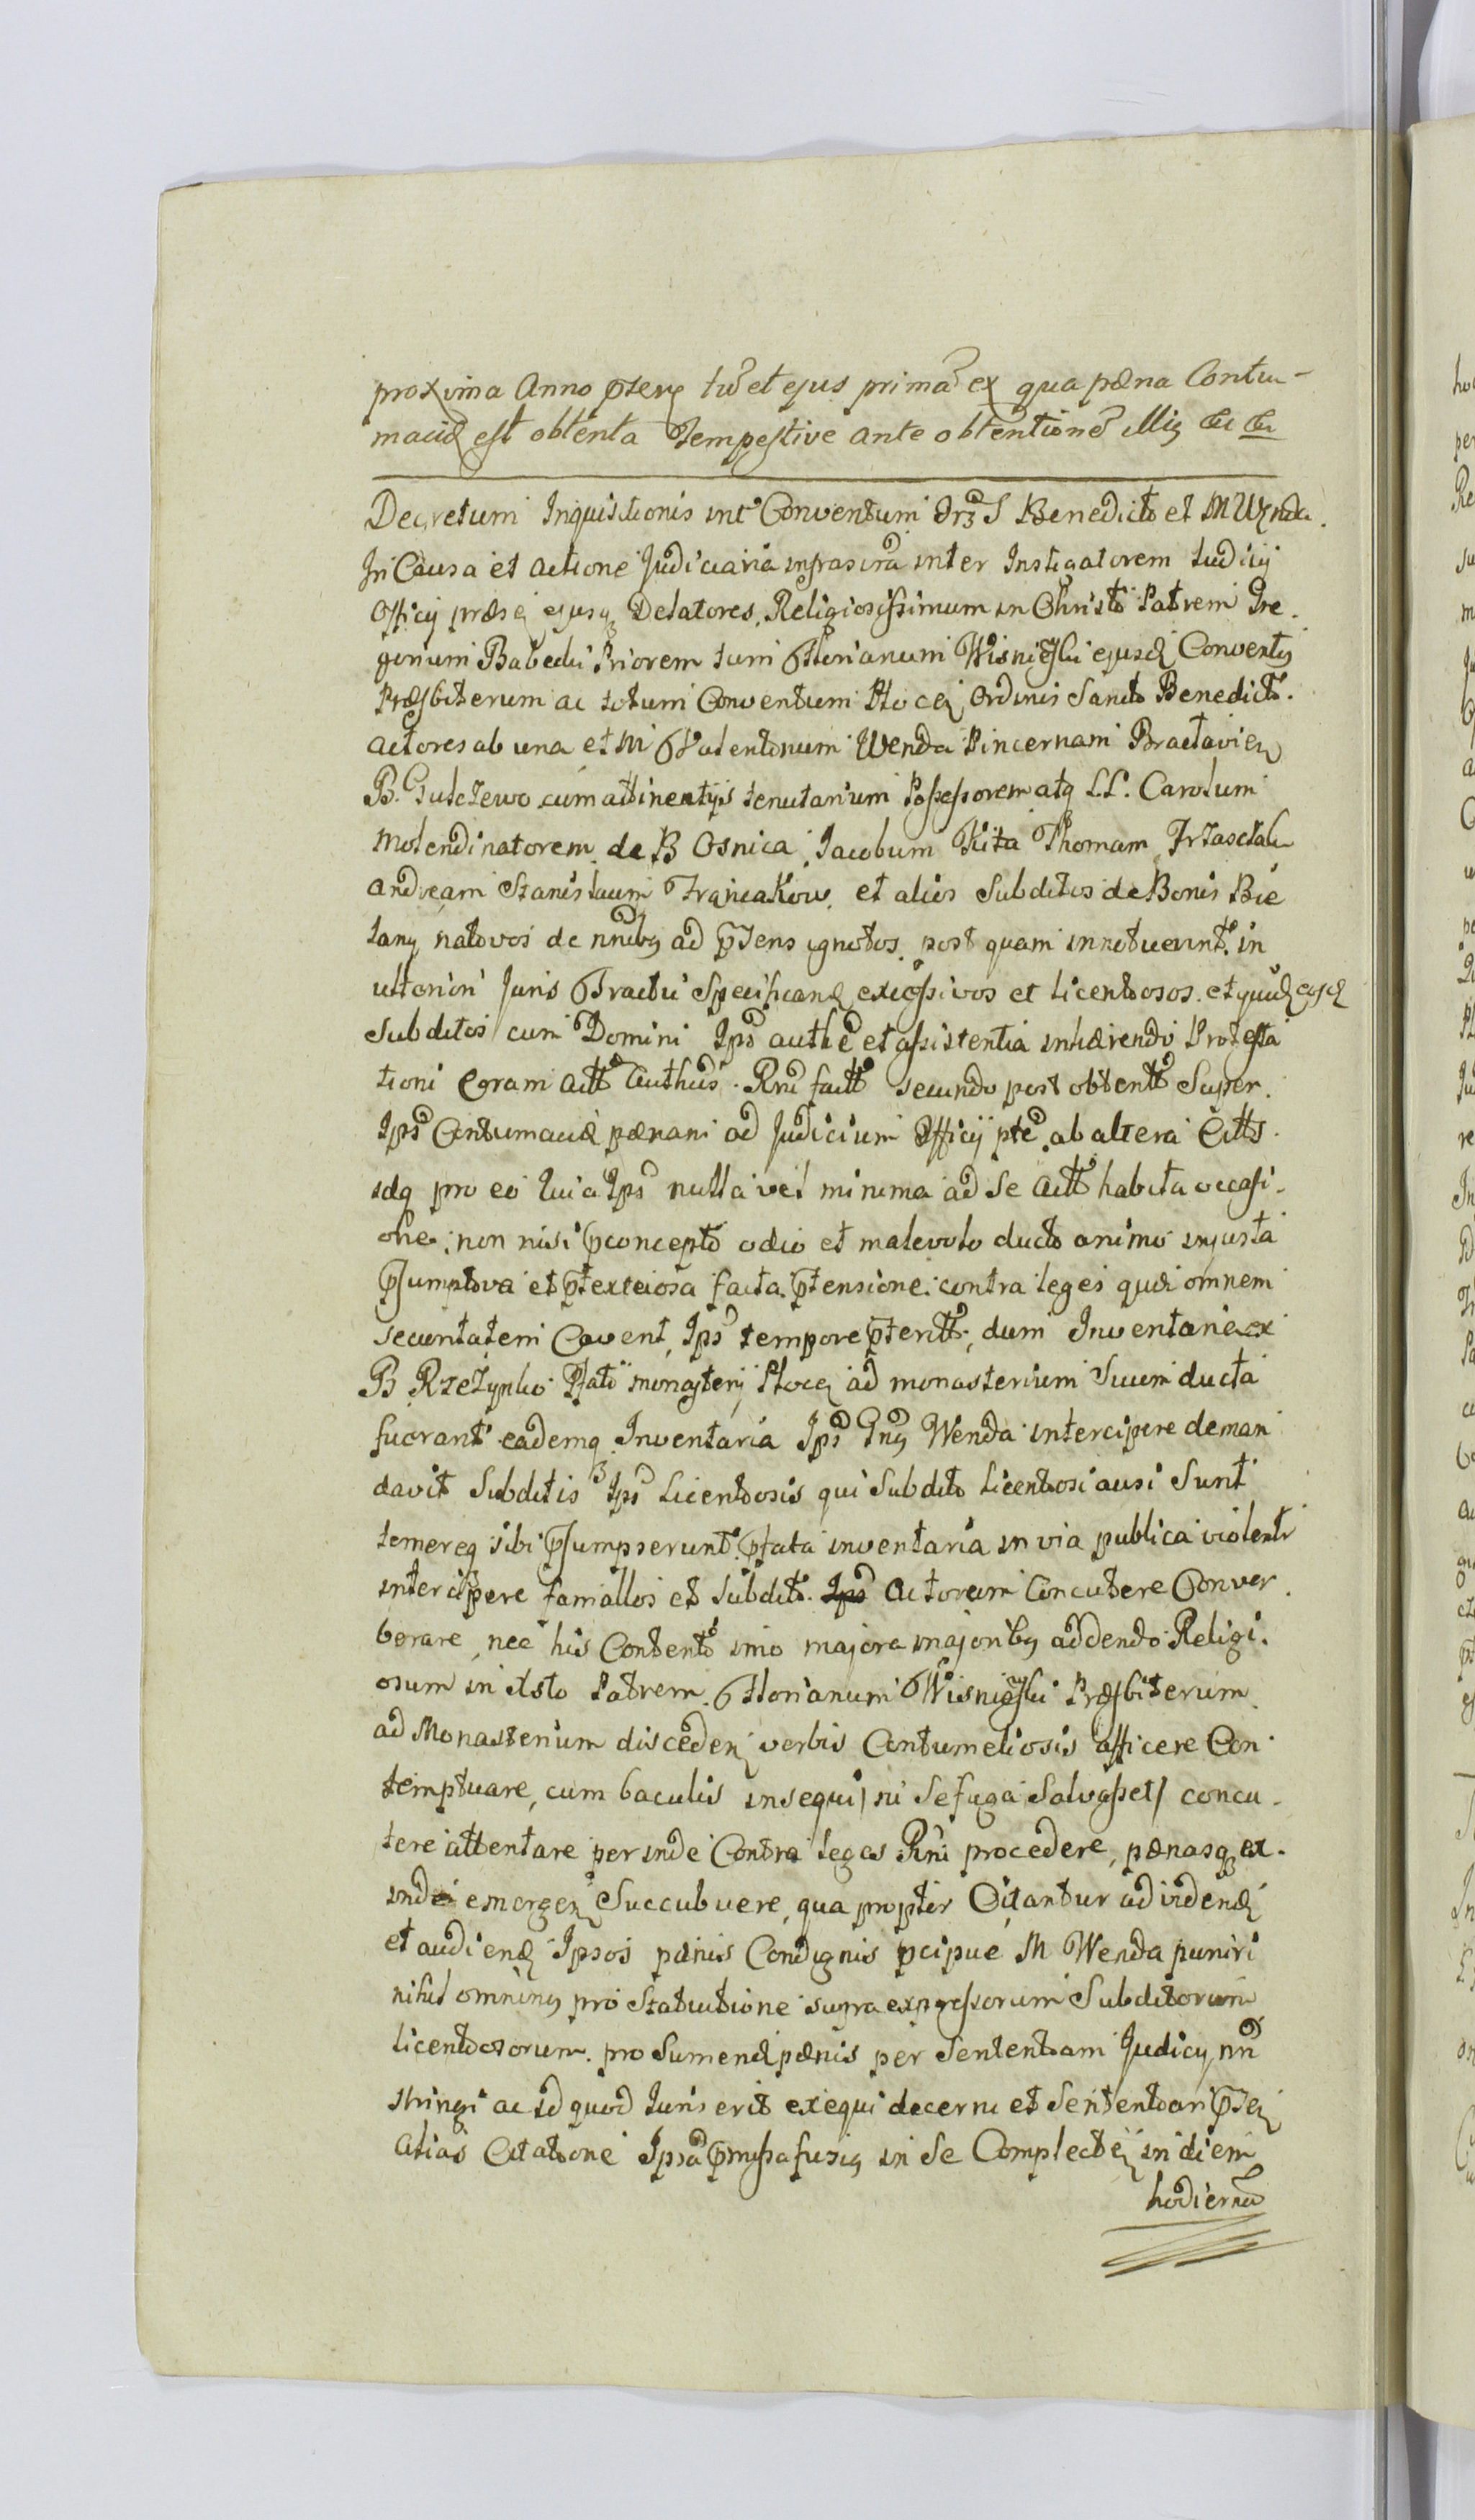 proxima Anno pteri tū et ejus prima ex qua pæna Contu-
maciæ est obtenta Tempestive ante obtentionē illiq &c &c
Decretum Inquisitionis int Conventum S Benedicti et M Wenda
In Causa et actione Judiciaria infrascra inter Instigatorem Judicij
Officij præsē ejusq Delatores, Religiosissimum in Christo Patrem Gre-
gorium Babecki Priorem tum Florianum Wisniewski ejusd Conventq
Præsbiterum ac totum Conventum Plocē Ordinis Sancti Benedicti
actores ab una et M Valentinum Wenda Pincernam Braclavień
B. Gulczewo cum attinentijs tenutarium Possessorem atq LL. Carolum
Molendinatorem de B Osnica Jacobum Kita Thomam
andream Stanislaum Franciakow et alios Subditos de Bonis Bie
lany nativos de nnibq ad ptens ignotos. post quam innotuerint in
ulteriori Juris Tractu Specificand excessivos et licentiosos et
subditos cum Domini Ips authē et assistentia inhærendo Protesta
tioni coram actt Authus Rni factt secundo post obtentt Super
Ips Contumaciæ pænam ad Judicium Officij pte ab altera Citts
idq pro eo Quia Ips nulla vel minima ad se actt habita occasi-
one; non nisi pconcepto odio et malevolo ducto animo injusta
psumptiva et ptextiosa facta ptensione contra leges quæ omnem
securitatem Cavent, Ips tempore pteritt, dum Inventaria ex
B Rzeżynko Pfati monasterij Plocē ad monasterium Suum ducta
fuerant eademq Inventaria Ips Gnq Wenda intercipere deman
davit Subditis Ips Licentiosis qui Subditi Licentiosi ausi Sunt
temereq sibi psumpserunt pfata inventaria in via publica violentr
intercipere famallos et subdit. Ips actorum Concutere Conver
berare, nec his Contenti imo majora majoribq addendo Religi-
osum in Xsto Patrem Florianum Wisniewski Præsbiterum
ad Monasterium disceden verbis Contumeliosis afficere Con-
temptuare, cum baculis insequi, ni se fuga Salvasset / concu-
tere attentare per inde Contra leges Rni procedere, pænasq ex-
inde emergen Succubuere, qua propter Citantur ad videnď
et audiend Ipsos pænis Condignis pcipue M Wenda puniri
nihil ominq pro Statuitione supra expressorum Subditorum
licentiosorum. pro Sumend pænis per Sententiam Judicij
stringi ac id quod Juris erit exequi decerni et Sententiari pten
Alias Citatione Ipsa pmissa fusiq in se Complecten in diem
hodiernā